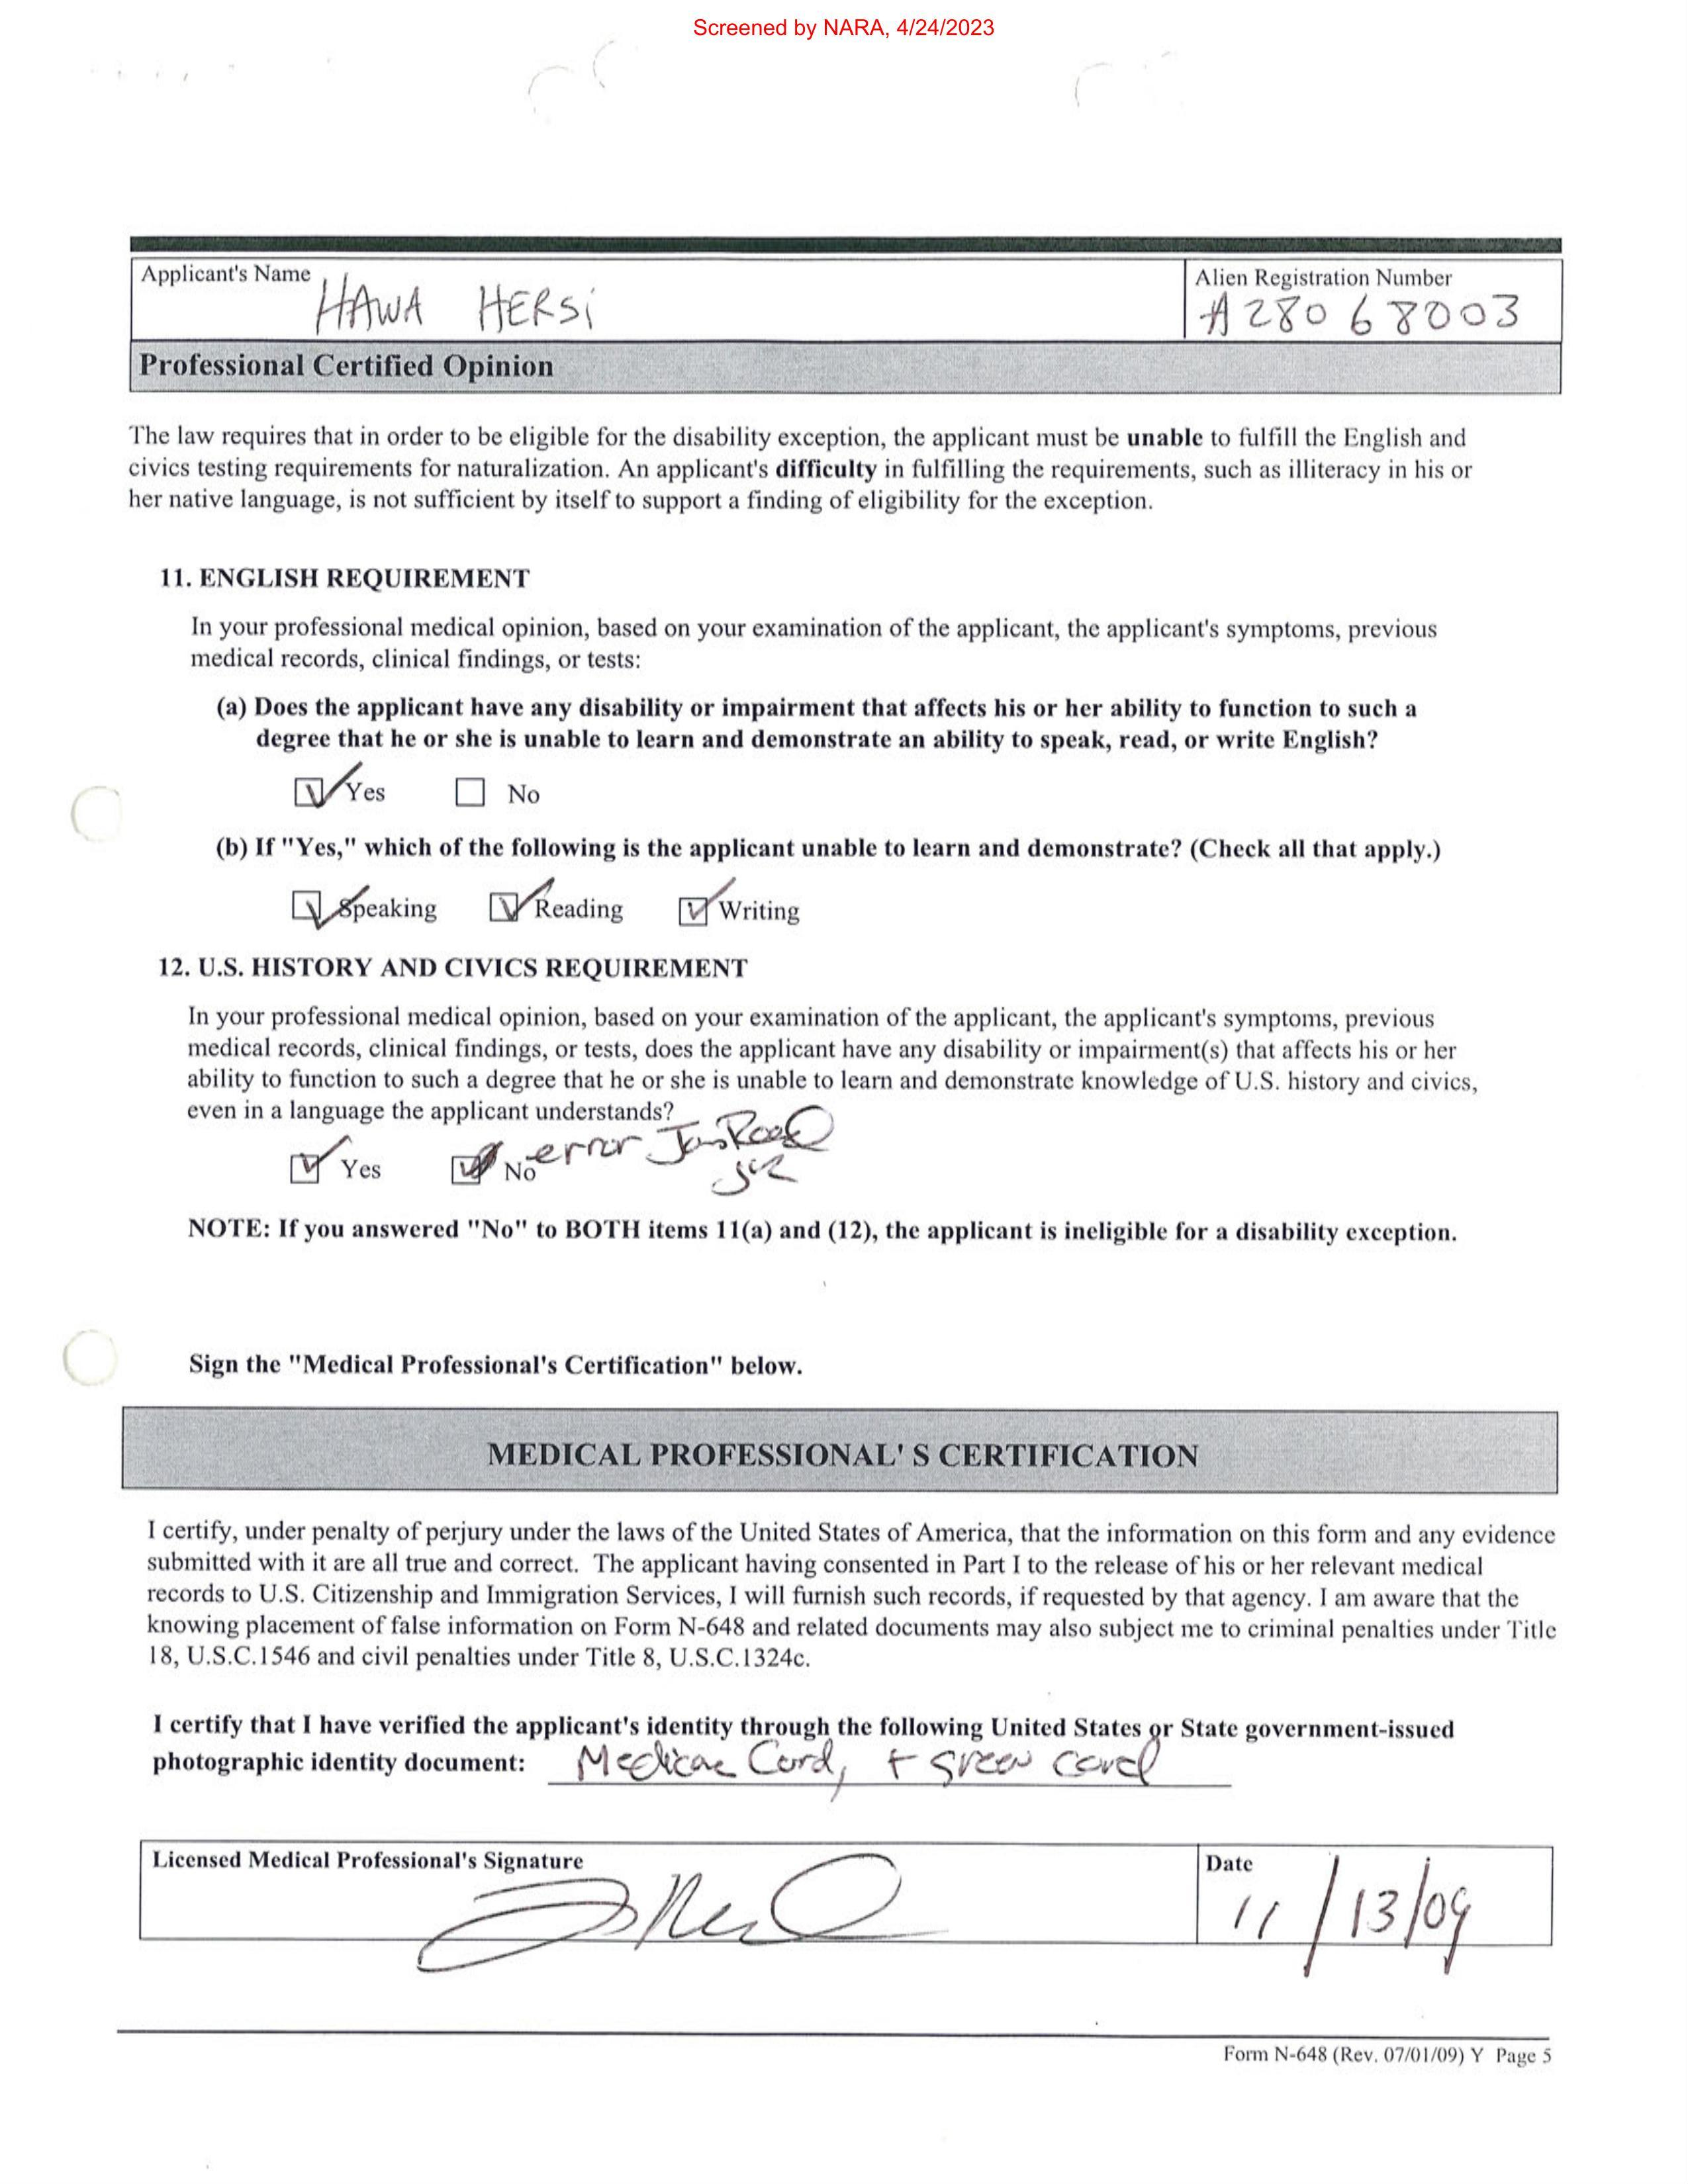 Screened by NARA, 4/24/2023
Applicant's Name HAWA HERSi
Alien Registration Number
A28068003
Professional Certified Opinion
The law requires that in order to be eligible for the disability exception, the applicant must be unable to fulfill the English and
civics testing requirements for naturalization. An applicant's difficulty in fulfilling the requirements, such as illiteracy in his or
her native language, is not sufficient by itself to support a finding of eligibility for the exception.
11. ENGLISH REQUIREMENT
In your professional medical opinion, based on your examination of the applicant, the applicant's symptoms, previous
medical records, clinical findings, or tests:
(a) Does the applicant have any disability or impairment that affects his or her ability to function to such a
degree that he or she is unable to learn and demonstrate an ability to speak, read, or write English?
Yes No
(b) If "Yes," which of the following is the applicant unable to learn and demonstrate? (Check all that apply.)
Speaking Reading Writing
12. U.S. HISTORY AND CIVICS REQUIREMENT
In your professional medical opinion, based on your examination of the applicant, the applicant's symptoms, previous
medical records, clinical findings, or tests, does the applicant have any disability or impairment(s) that affects his or her
ability to function to such a degree that he or she is unable to learn and demonstrate knowledge of U.S. history and civics,
even in a language the applicant understands?
Yes No error
NOTE: If you answered "No" to BOTH items 11(a) and (12), the applicant is ineligible for a disability exception.
Sign the "Medical Professional's Certification" below.
MEDICAL PROFESSIONAL' S CERTIFICATION
I certify, under penalty of perjury under the laws of the United States of America, that the information on this form and any evidence
submitted with it are all true and correct. The applicant having consented in Part I to the release of his or her relevant medical
records to U.S. Citizenship and Immigration Services, I will furnish such records, if requested by that agency. I am aware that the
knowing placement of false information on Form N-648 and related documents may also subject me to criminal penalties under Title
18, U.S.C.1546 and civil penalties under Title 8, U.S.C.1324c.
I certify that I have verified the applicant's identity through the following United States or State government-issued
photographic identity document: Medicare Card, + green card
Licensed Medical Professional's Signature
Date
11/13/09
Form N-648 (Rev. 07/01/09) Y Page 5